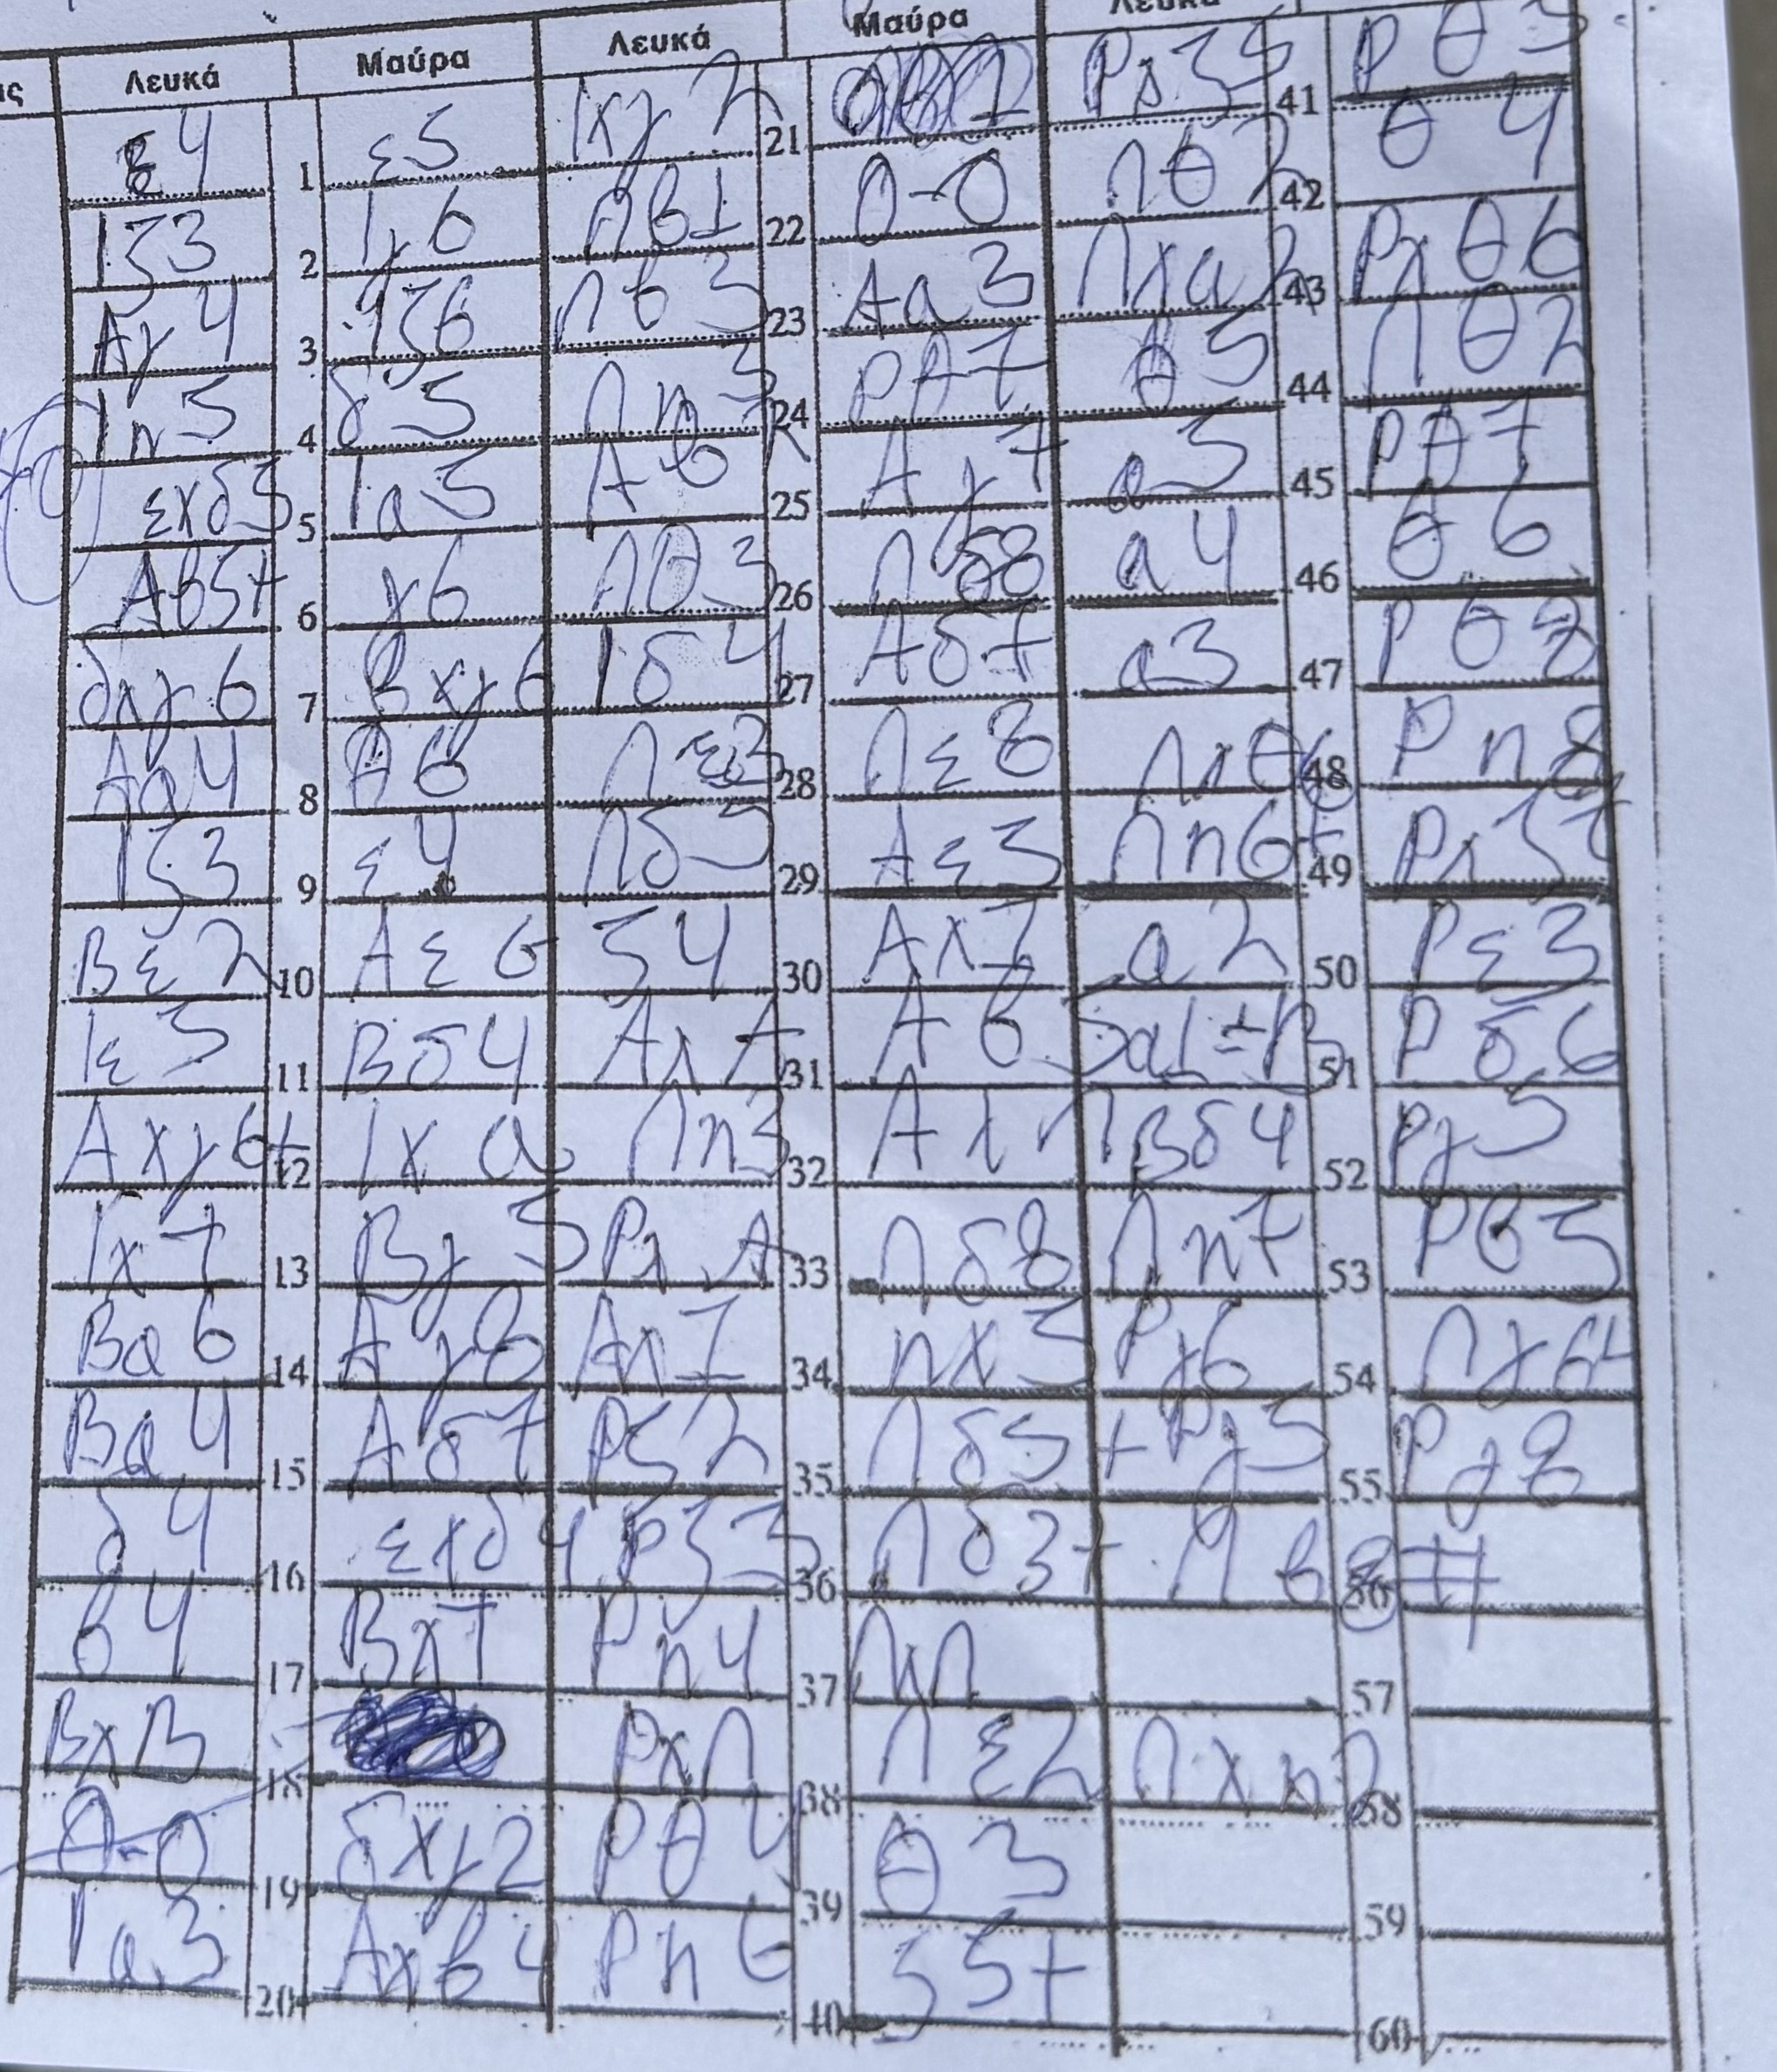 Λευκά Μαύρα Λευκά Μαύρα Λευκά
ε4 1 ε5 Ιxγ2 21 41 Ρθ5
Ιζ3 2 Ιγ6 Πβ1 22 0-0 Πθ2 42 θ4
Αγ4 3 Ιζ6 Πβ3 23 Αα3 Πxα2 43 Ρxθ6
Ιη5 4 δ5 Πη3 24 ΡΘ7 θ5 44 Πθ2
εxδ5 5 Ια5 Αβ 25 Αγ7 α5 45 Ρθ7
Αβ5+ 6 γ6 Πθ3 26 Πδ8 α4 46 θ6
δxγ6 7 βxγ6 Ιδ4 27 Αδ7 α3 47 Ρθ8
Αα4 8 θ6 Πε3 28 Πε8 Πxθ6 48 Ρη8
Ιζ3 9 ε4 Πδ3 29 Αε5 Πη6+ 49
Βε2 10 Αε6 ζ4 30 Αx7 α2 50 Ρε3
Ιε5 11 Βδ4 ΑxΑ 31 Αβ5 α1=Β 51 Ρδ6
Αxγ6+ 12 Ιxα Πη3 32 ΑxΠ Βδ4 52 Ργ5
Ιx7 13 Βγ5 ΡxΑ 33 Πδ8 Πη7 53 Ρβ5
Βα6 14 Αγ8 Αη7 34 ηx5 Ργ6 54 Πγ6+
Βα4 15 Αδ7 Ρζ2 35 Πδ5+ Ργ5 55 Ργ8
δ4 16 εxδ4 Ρζ3 36 Πδ3+ Πβ8 56 #
β4 17 Βx7 Ρη4 37 ΠxΠ 57
ΒxΒ 18 ΡxΠ 38 Πε2 Πxη2 58
0-0 19 δxγ2 Ρθ4 39 θ3 59
Ια3 20 Αxβ4 Ρη6 40 ζ5+ 60